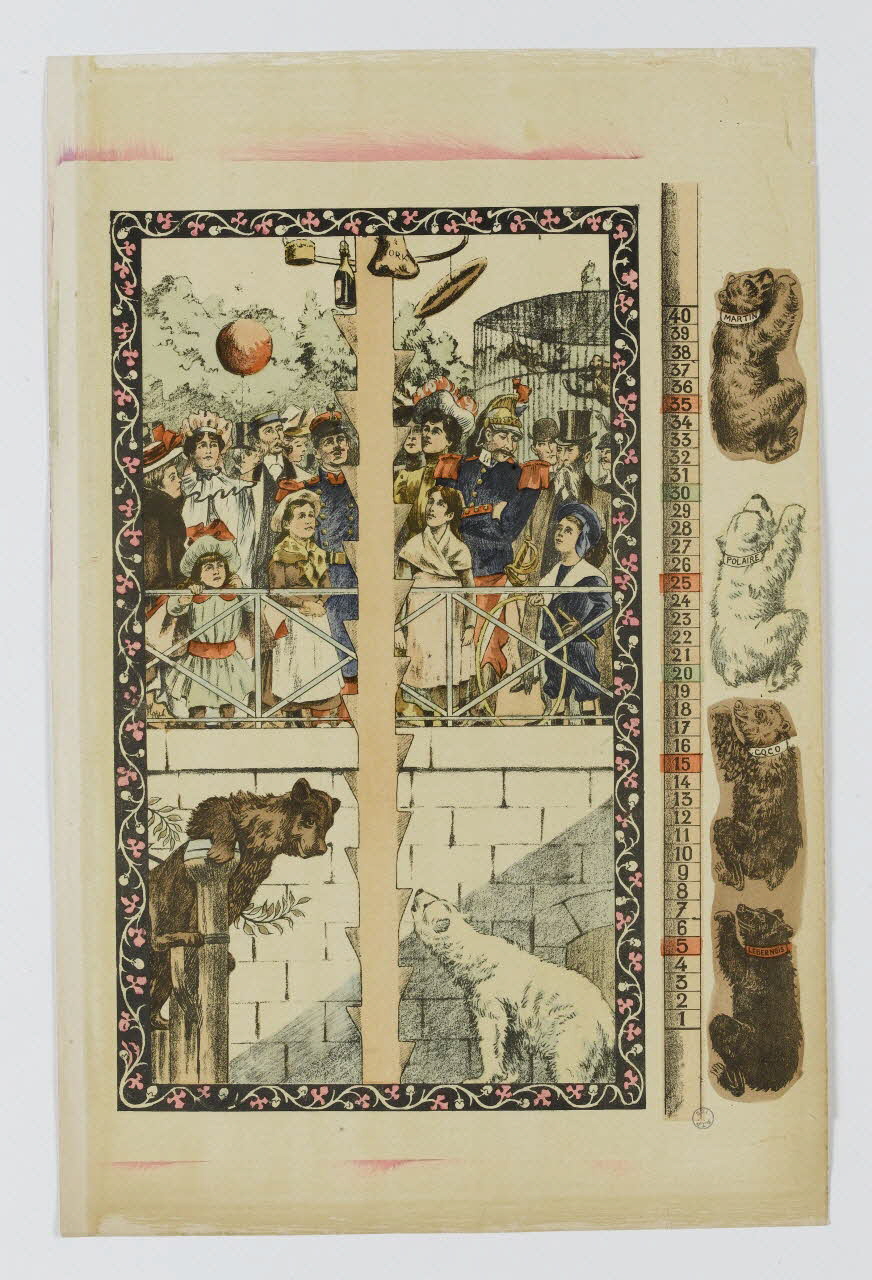 ORK
40
39
38
37
36
35
34
33
32
31
30
29
28
27
26
25
24
23
22
21
20
19
18
17
16
15
14
13
12
11
10
9
8
7
6
5
4
3
2
1
MARTIN
POLAIRE
COCO
LEBERNOIS